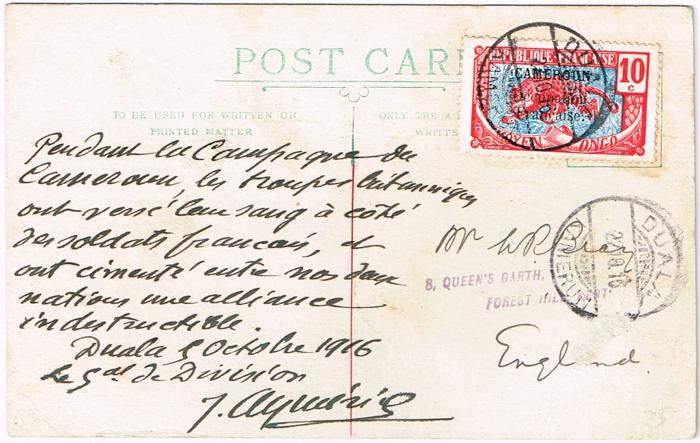 POST CAR
TO BE USED FOR WRITTEN OR
PRINTED MATTER
ONLY THE AD
WRITTE
REPUBLIQUE FRANÇAISE
10
c
CAMEROUN
Occupation
Française.
YEN
ONGO
Pendant la Campagne du
Cameroun, les troupes britanniques
ont versé leur sang à côté
des soldats français, et
ont cimenté entre nos deux
nations une alliance
indestructible.
Duala 5 Octobre 1916
Le Gal de Division
J. Aymérich
Mr W.R. Gray
8, QUEEN'S GARTH,
FOREST HILL
England.
DUALA
KAMERUN